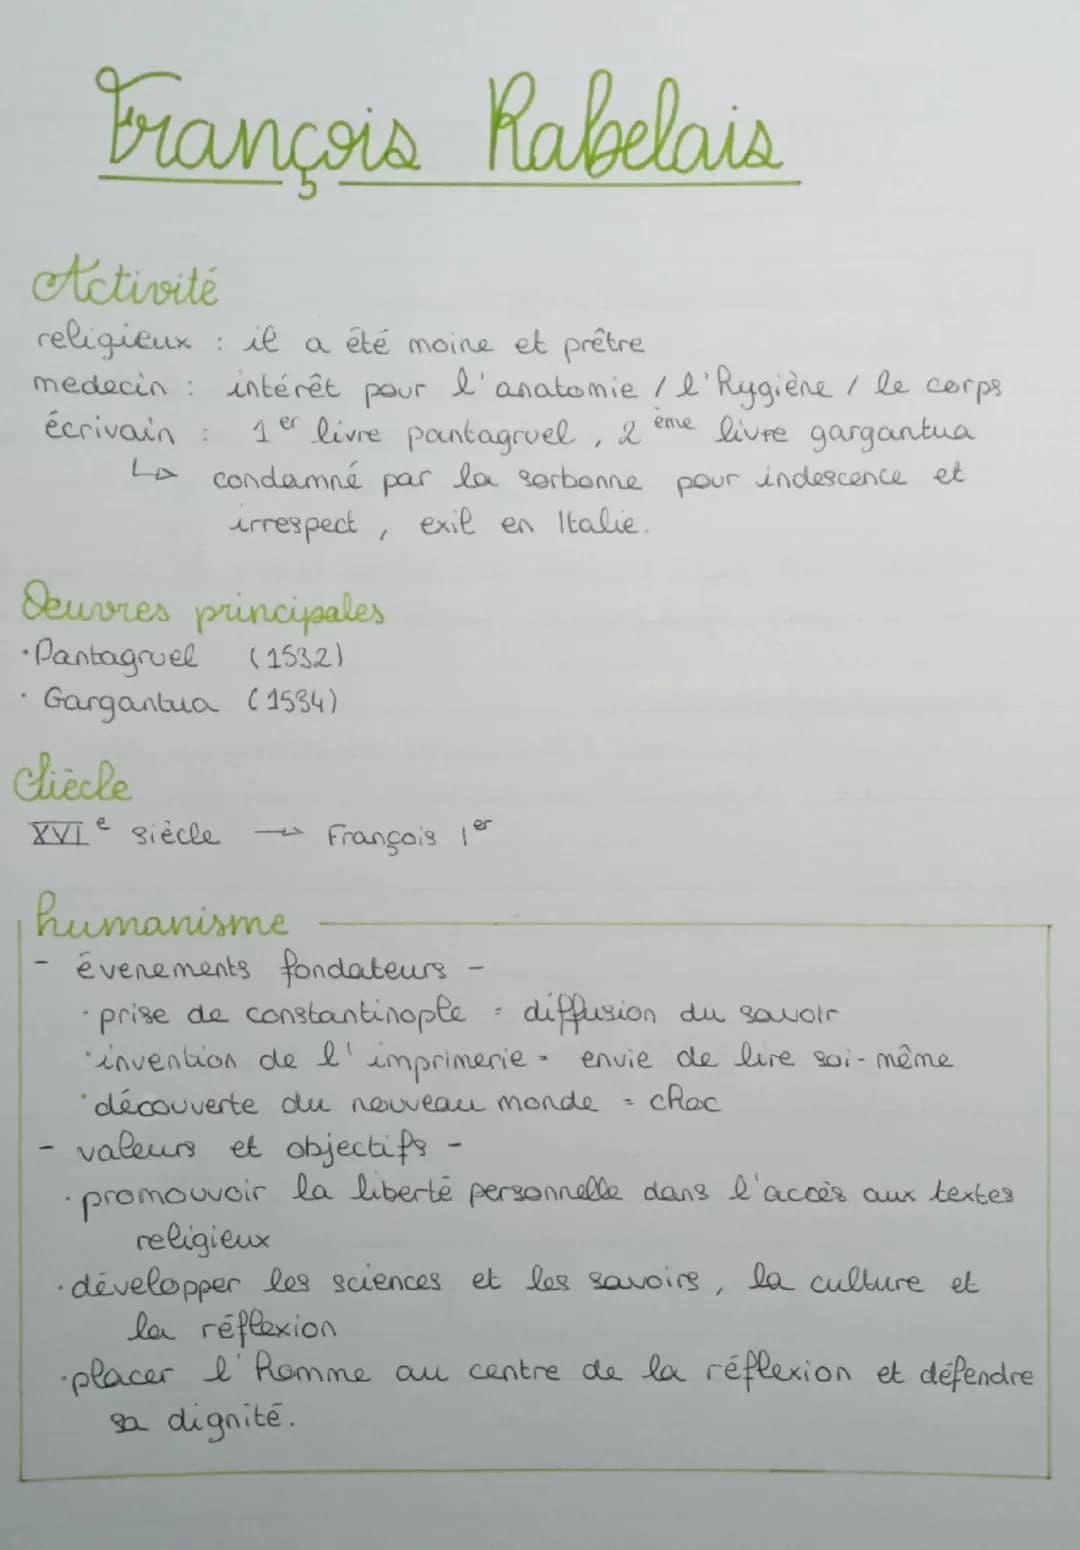 François Rabelais
Activité
religieux : il a été moine et prêtre
medecin : intérêt pour l'anatomie / l'hygiène / le corps
écrivain : 1er livre pantagruel, 2ème livre gargantua
↳ condamné par la sorbonne pour indescence et
irrespect, exil en Italie.
Oeuvres principales
· Pantagruel (1532)
· Gargantua (1534)
Siècle
XVIe siècle → François 1er
humanisme
- évenements fondateurs -
· prise de constantinople = diffusion du savoir
· invention de l'imprimerie = envie de lire soi-même
· découverte du nouveau monde = choc
- valeurs et objectifs -
· promouvoir la liberté personnelle dans l'accès aux textes
religieux
· développer les sciences et les savoirs, la culture et
la réflexion
· placer l'homme au centre de la réflexion et défendre
sa dignité.